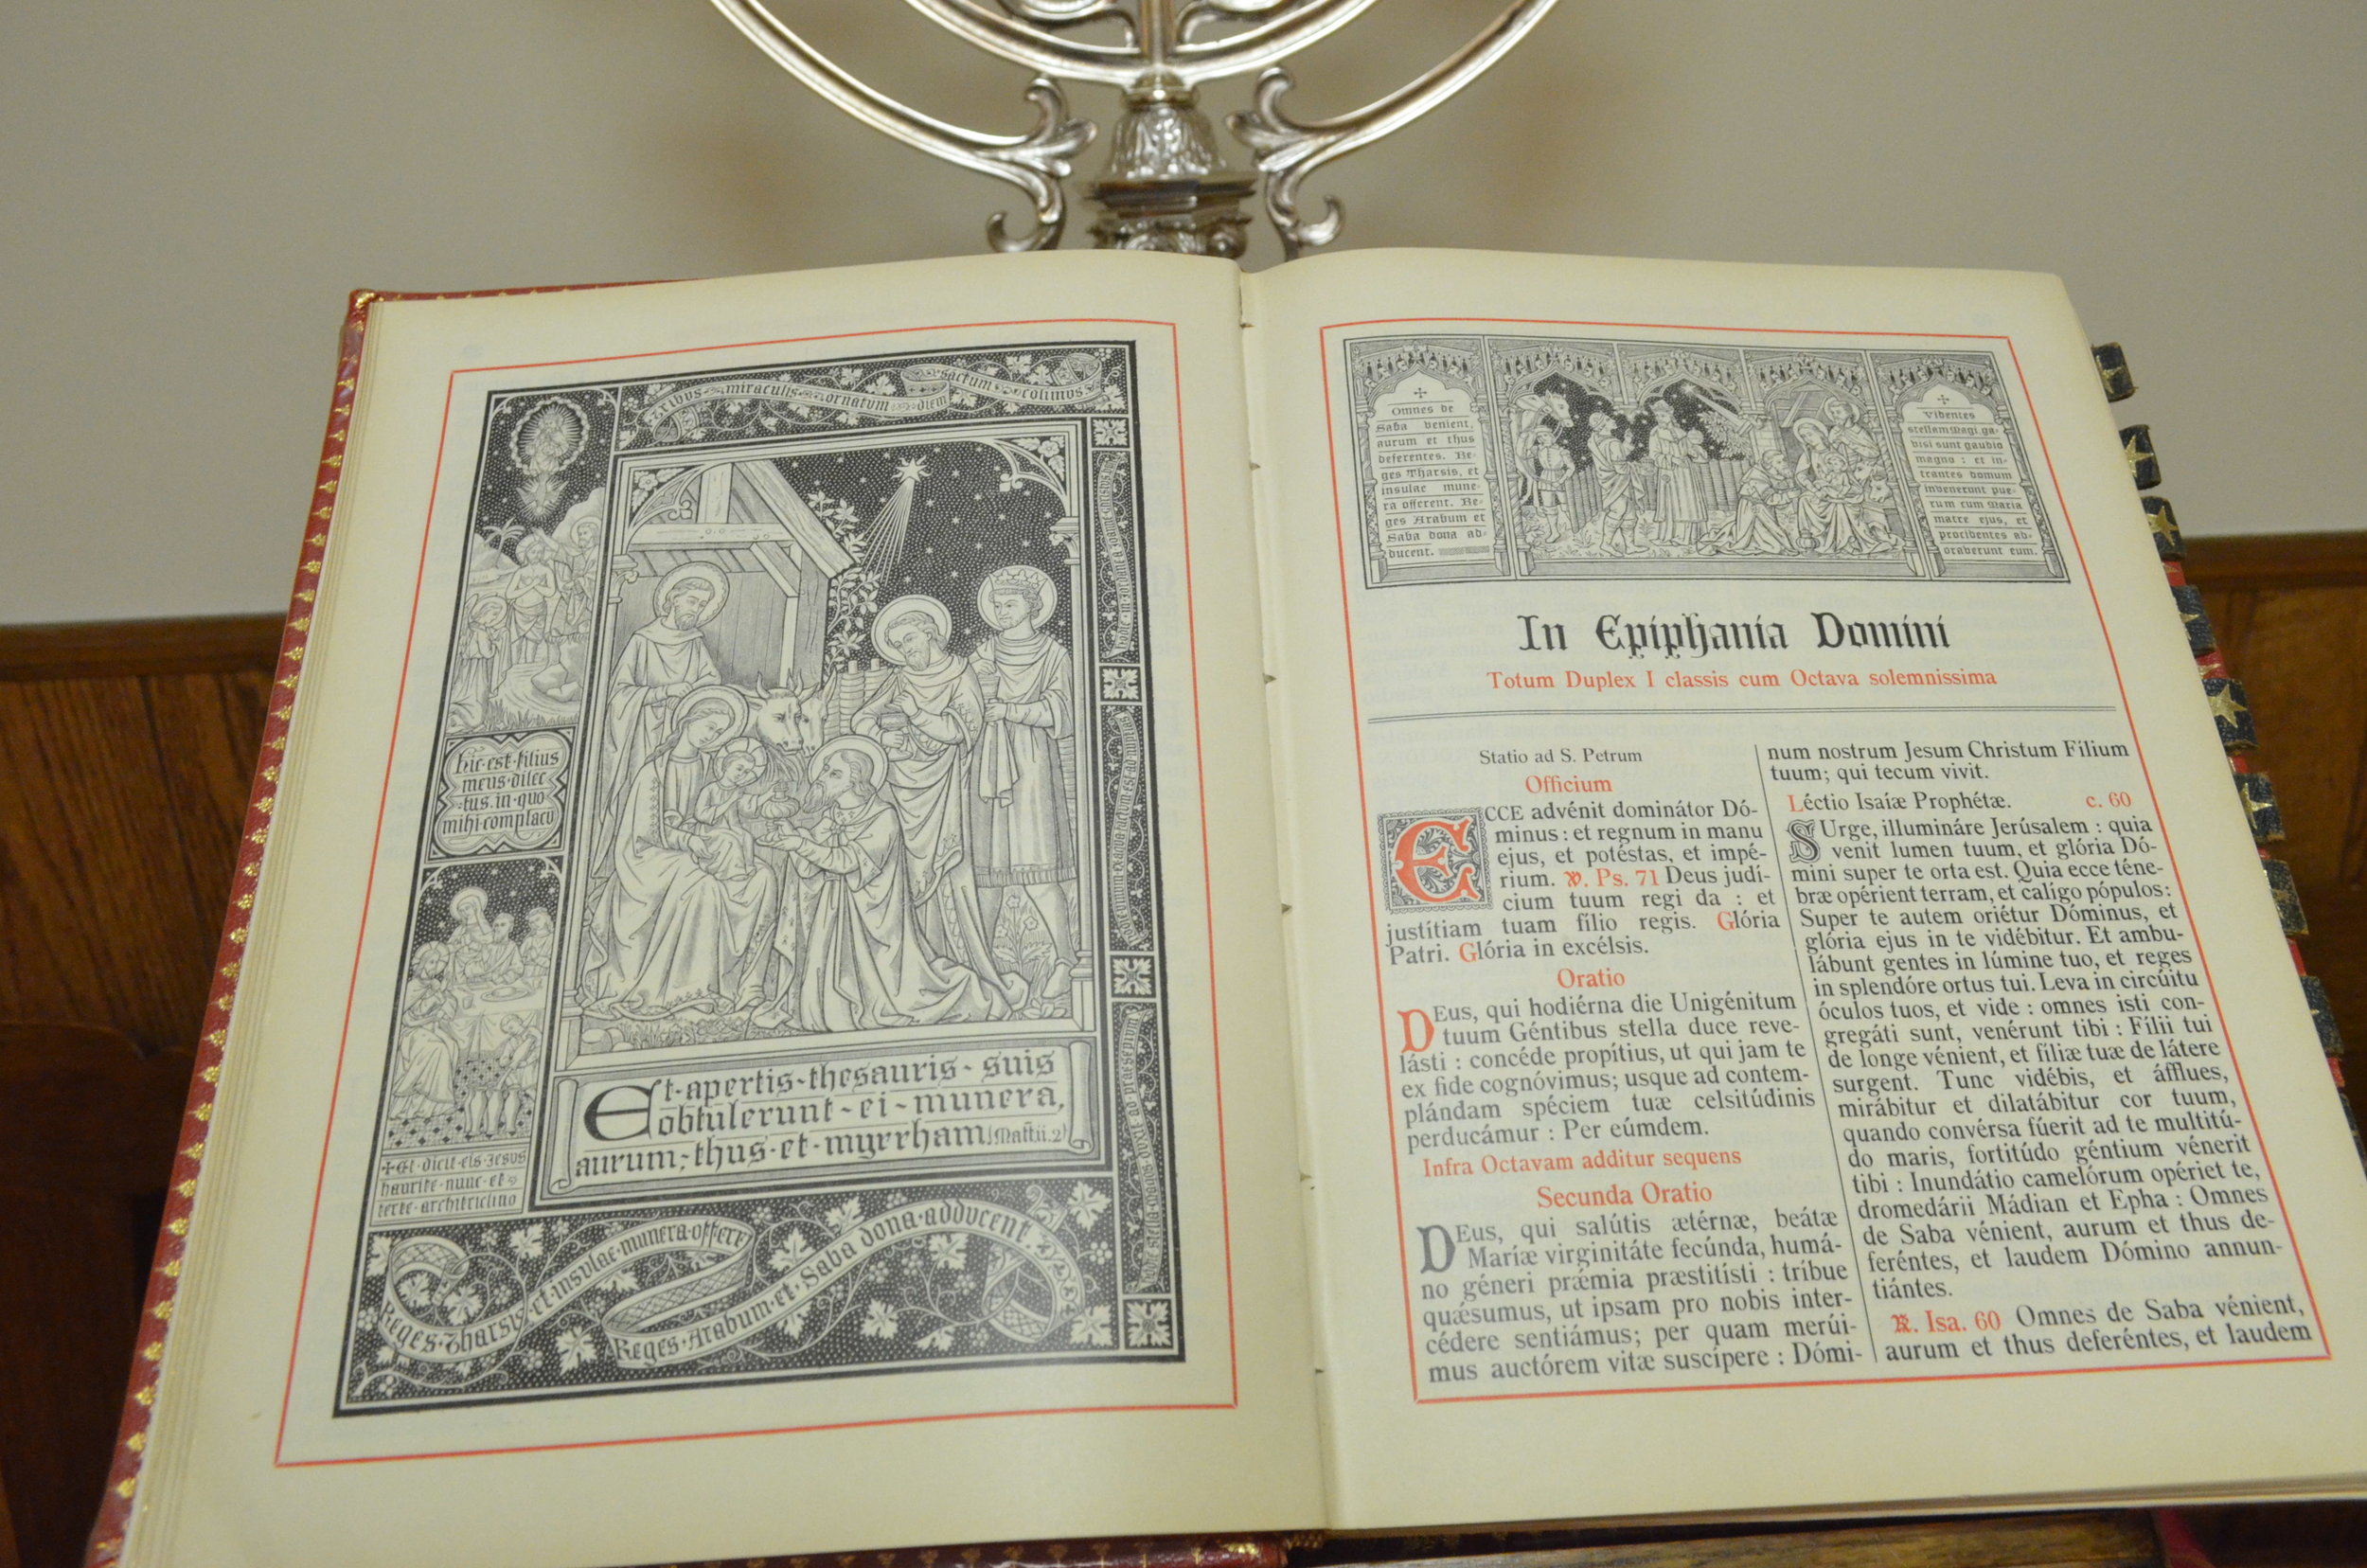 tribus · miraculis · ornatum diem sactum colimus
Hic · est · filius
meus · dilec
· tus · in · quo
mihi · complacu
Et · apertis · thesauris · suis
obtulerunt · ei · munera,
aurum, · thus · et · myrrham
+ Et · dicit · eis · Jesus
haurite · nunc · et
ferte · architriclino
Reges · Tharsis · et · insulae · munera · offere
Reges · Arabum · et · Saba dona · adducent.
Omnes de
Saba venient,
aurum et thus
deferentes. Re-
ges Tharsis, et
insulae mune-
ra offerent. Re-
ges Arabum et
Saba dona ad-
ducent.
Videntes
stellam Magi, ga-
visi sunt gaudio
magno : et in-
trantes domum
invenerunt pue-
rum cum Maria
matre ejus, et
procidentes ad-
oraverunt eum.
In Epiphania Domini
Totum Duplex I classis cum Octava solemnissima
Statio ad S. Petrum
Officium
ECCE advénit dominátor Dó-
minus : et regnum in manu
ejus, et potéstas, et impé-
rium. ℣. Ps. 71 Deus judí-
cium tuum regi da : et
justítiam tuam fílio regis. Glória
Patri. Glória in excélsis.
Oratio
DEus, qui hodiérna die Unigénitum
tuum Géntibus stella duce reve-
lásti : concéde propítius, ut qui jam te
ex fide cognóvimus; usque ad contem-
plándam spéciem tuæ celsitúdinis
perducámur : Per eúmdem.
Infra Octavam additur sequens
Secunda Oratio
DEus, qui salútis ætérnæ, beátæ
Maríæ virginitáte fecúnda, humá-
no géneri prǽmia præstitísti : tríbue
quǽsumus, ut ipsam pro nobis inter-
cédere sentiámus; per quam merúi-
mus auctórem vitæ suscípere : Dómi-
num nostrum Jesum Christum Fílium
tuum; qui tecum vivit.
Léctio Isaíæ Prophétæ. c. 60
SUrge, illumináre Jerúsalem : quia
venit lumen tuum, et glória Dó-
mini super te orta est. Quia ecce téne-
bræ opérient terram, et calígo pópulos :
Super te autem oriétur Dóminus, et
glória ejus in te vidébitur. Et ambu-
lábunt gentes in lúmine tuo, et reges
in splendóre ortus tui. Leva in circúitu
óculos tuos, et vide : omnes isti con-
gregáti sunt, venérunt tibi : Fílii tui
de longe vénient, et fíliæ tuæ de látere
surgent. Tunc vidébis, et áfflues,
mirábitur et dilatábitur cor tuum,
quando convérsa fúerit ad te multitú-
do maris, fortitúdo géntium vénerit
tibi : Inundátio camelórum opériet te,
dromedárii Mádian et Epha : Omnes
de Saba vénient, aurum et thus de-
feréntes, et laudem Dómino annun-
tiántes.
℟. Isa. 60 Omnes de Saba vénient,
aurum et thus deferéntes, et laudem